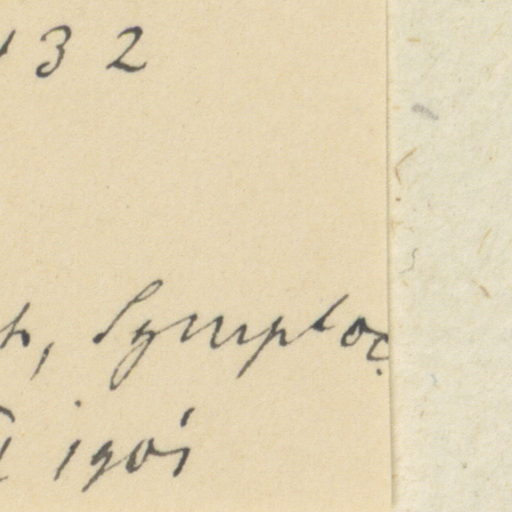 32
, Symploc.
1901